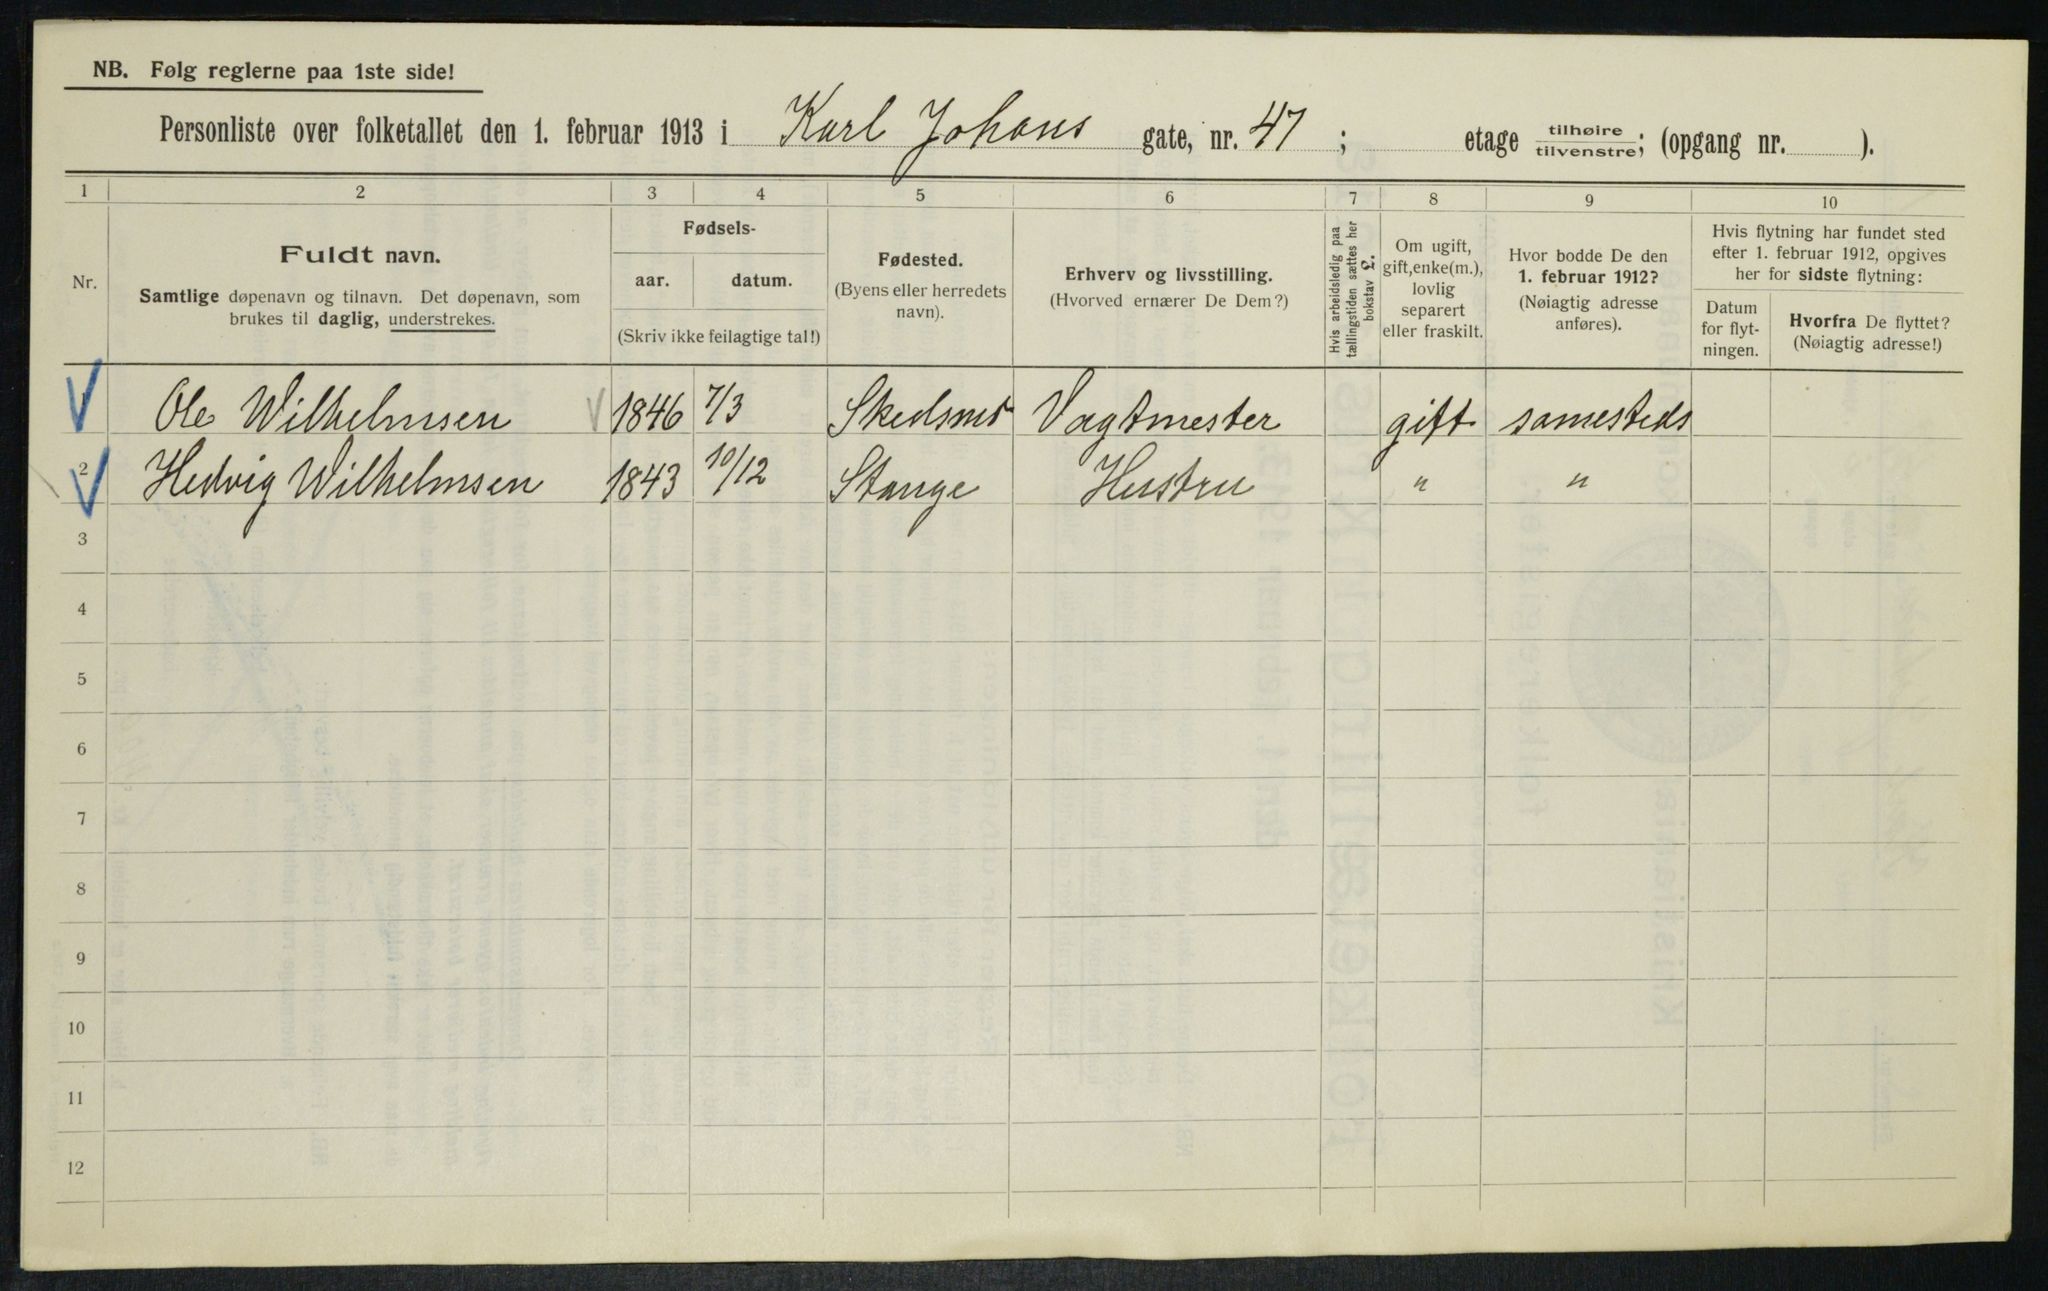 NB. Følg reglerne paa 1ste side!
Personliste over folketallet den 1. februar 1913 i Karl Johans gate, nr. 47 ; etage tilhøire/tilvenstre; (opgang nr. ).
1 2 3 4 5 6 7 8 9 10
Nr.
Fuldt navn.
Samtlige døpenavn og tilnavn. Det døpenavn, som
brukes til daglig, understrekes.
Fødsels-
aar. datum.
(Skriv ikke feilagtige tal!)
Fødested.
(Byens eller herredets
navn).
Erhverv og livsstilling.
(Hvorved ernærer De Dem?)
Hvis arbeidsledig paa
tællingstiden sættes her
bokstav L.
Om ugift,
gift, enke(m.),
lovlig
separert
eller fraskilt.
Hvor bodde De den
1. februar 1912?
(Nøiagtig adresse
anføres).
Hvis flytning har fundet sted
efter 1. februar 1912, opgives
her for sidste flytning:
Datum
for flyt-
ningen.
Hvorfra De flyttet?
(Nøiagtig adresse!)
1 Ole Wilhelmsen 1846 7/3 Skedsmo Vagtmester gift samesteds
2 Hedvig Wilhelmsen 1843 10/12 Stange Hustru " "
3
4
5
6
7
8
9
10
11
12